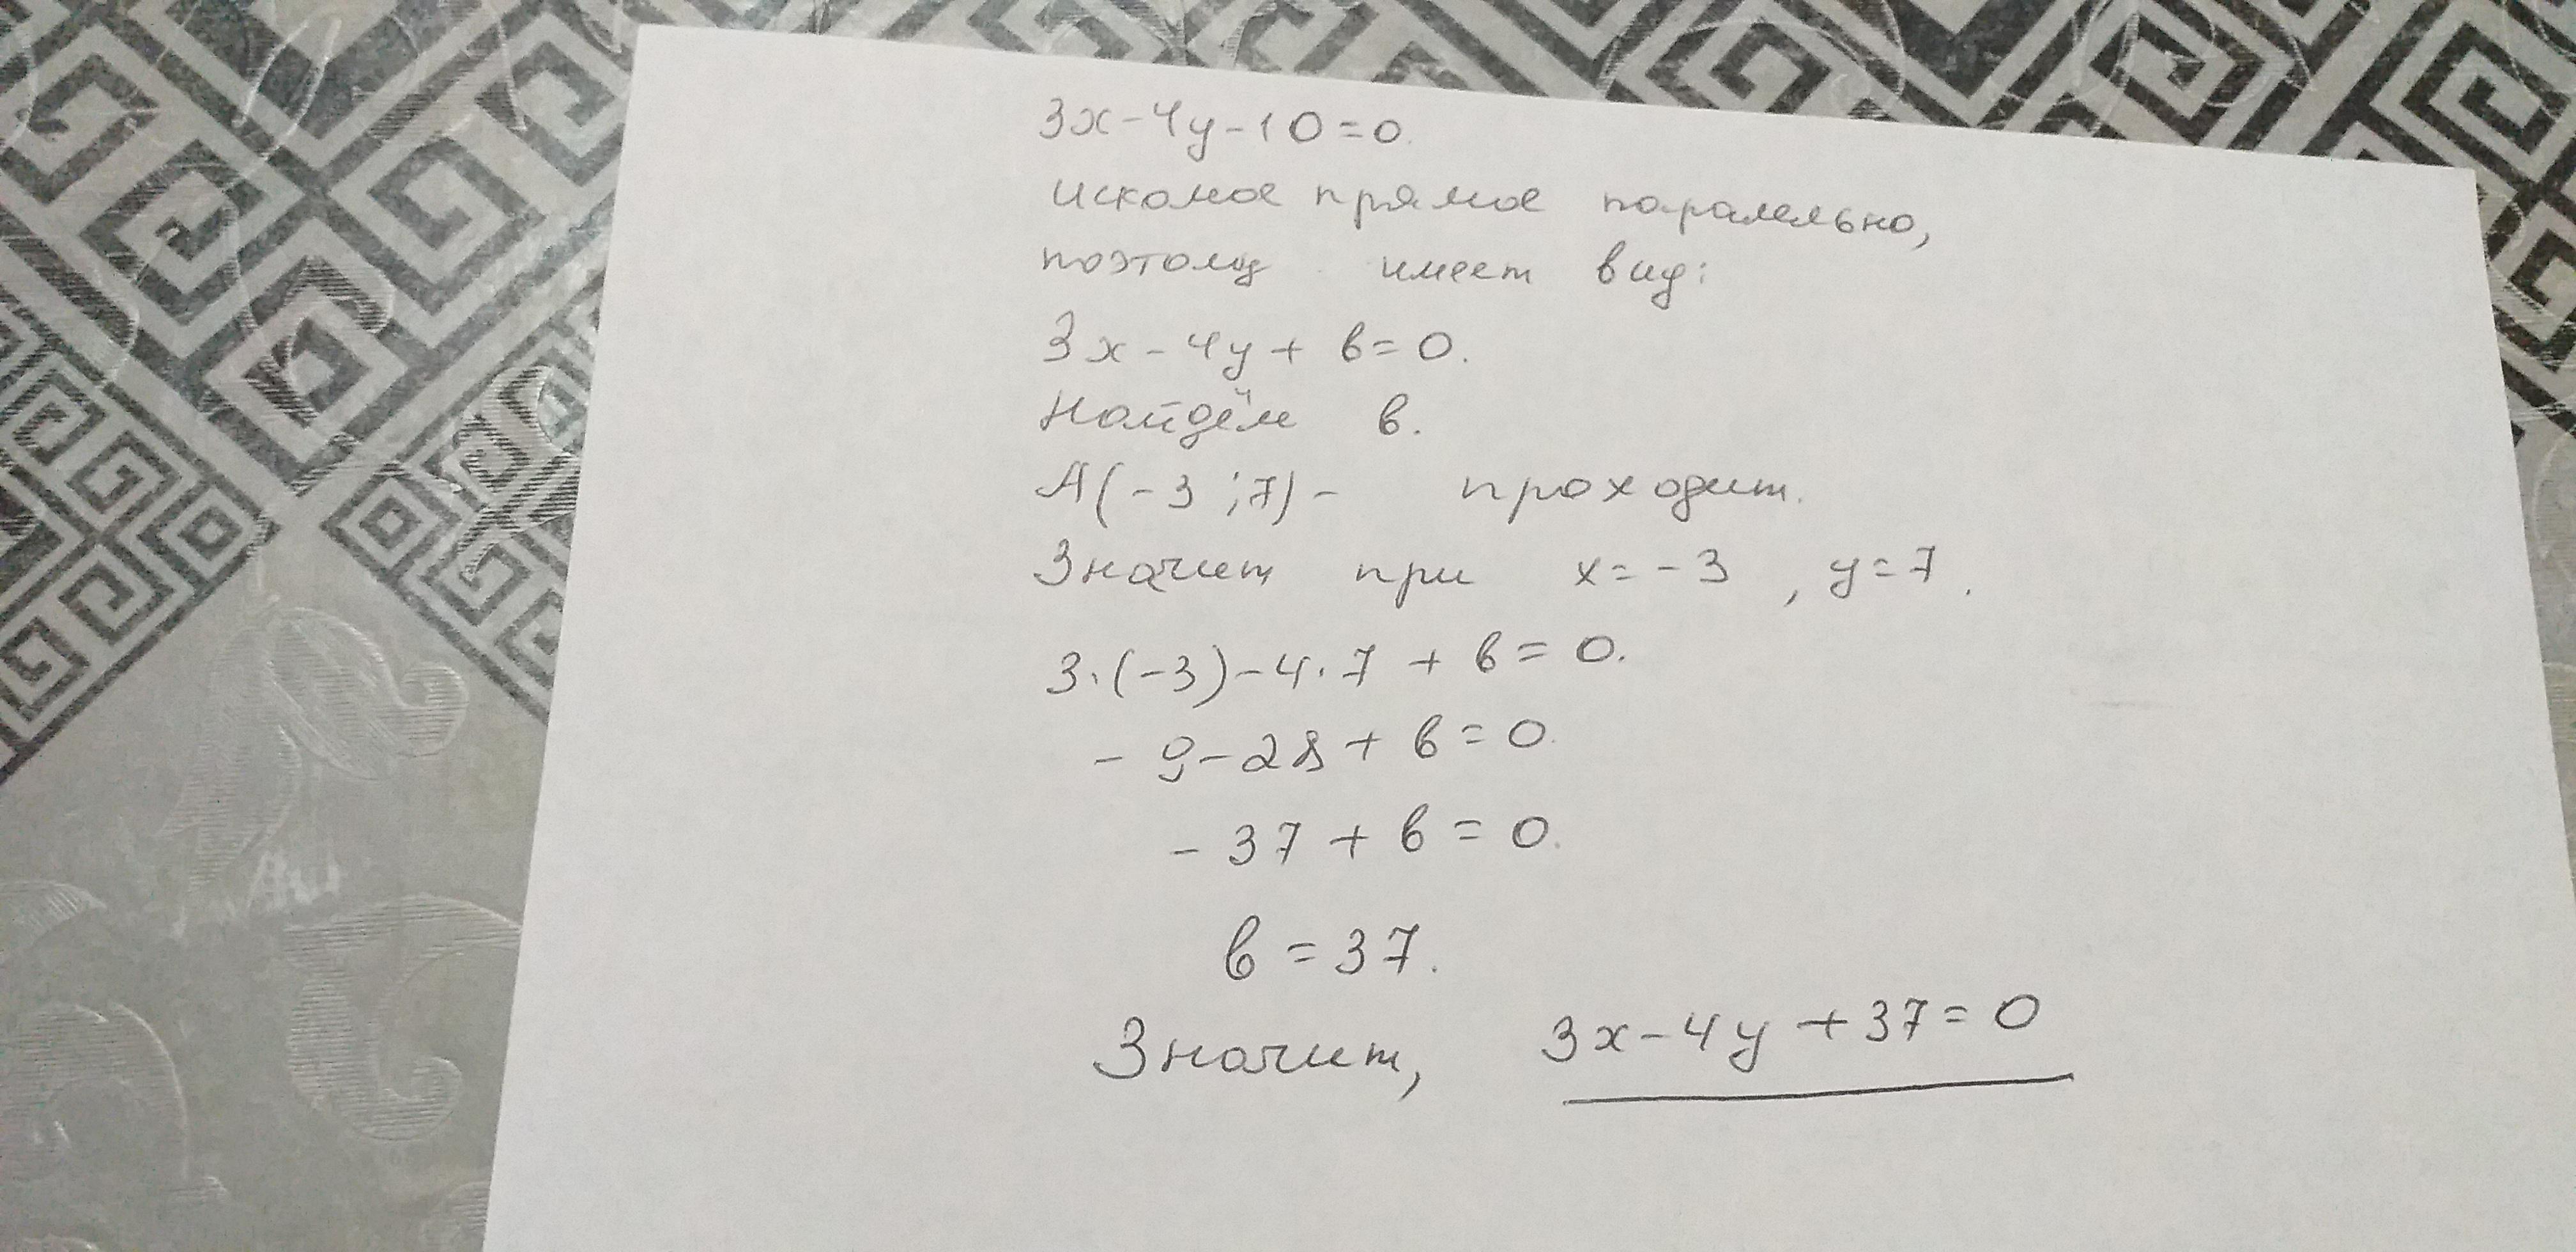 3x-4y-10=0.
искомое прямое паралельно,
поэтому имеет вид:
3x-4y+в=0.
Найдём в.
А(-3;7)- проходит.
Значит при x=-3, y=7.
3·(-3)-4·7+в=0.
-9-28+в=0.
-37+в=0.
в=37.
Значит, 3x-4y+37=0